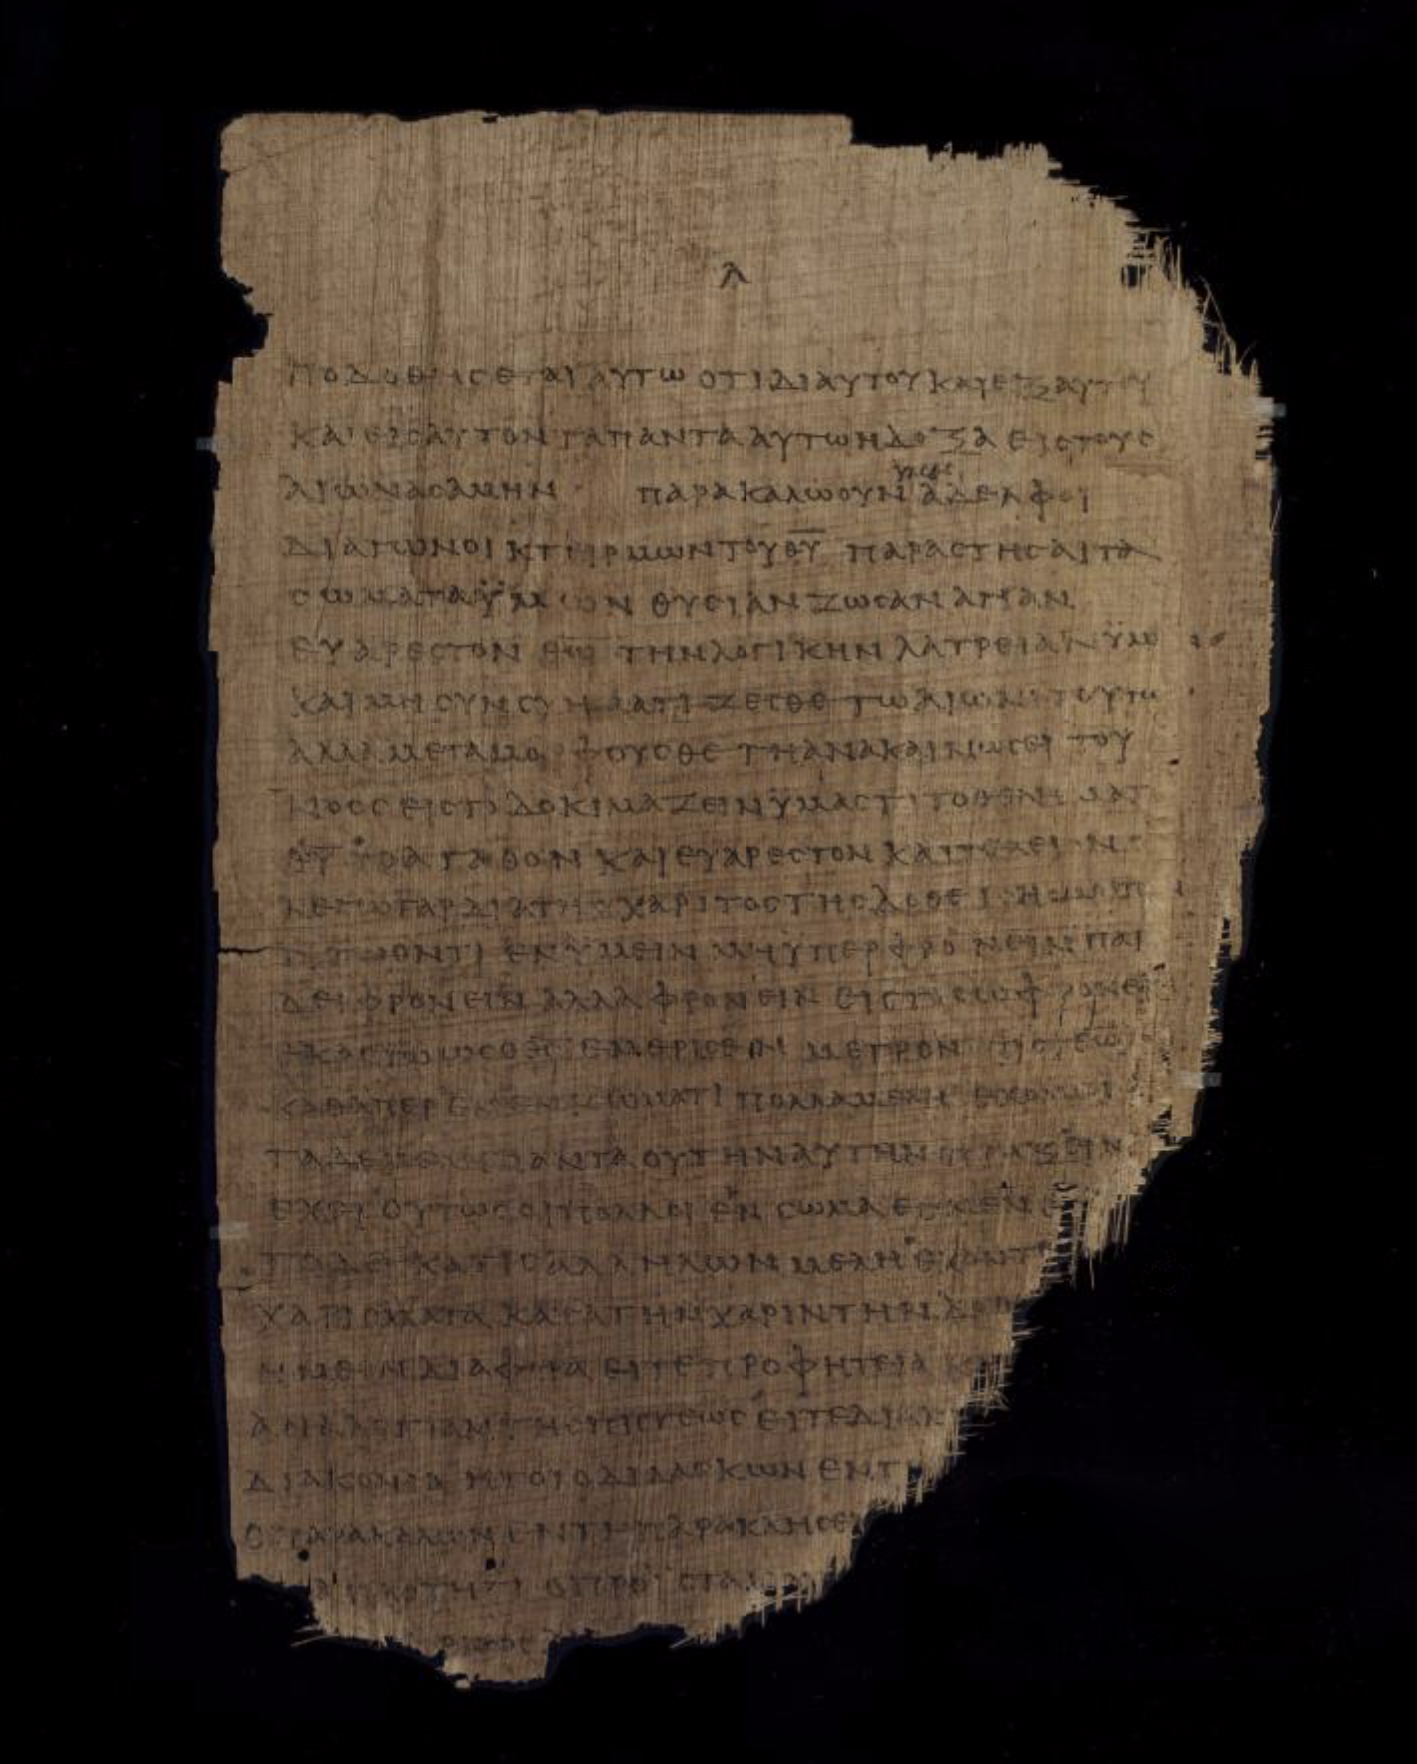 λ
ποδοθησεται αυτω οτι δι αυτου και εξ αυτου
και εις αυτον τα παντα αυτω η δοξα εις τους
αιωνας αμην παρακαλω ουν ϋμας αδελφοι
δια των οικτιρμων του θ̅υ̅ παραστησαι τα
σωματα ϋμων θυσιαν ζωσαν αγιαν
ευαρεστον θ̅ω̅ την λογικην λατρειαν ϋμω
και μη συνσχηματιζεσθε τω αιωνι τουτω
αλλα μεταμορφουσθε τη ανακαινωσει του
νοος εις το δοκιμαζειν ϋμας τι το θελημα του
θ̅υ̅ το αγαθον και ευαρεστον και τελειον
λεγω γαρ δια της χαριτος της δοθεισης μοι
οντι εν ϋμειν μη ϋπερφρονειν παρ
δει φρονειν αλλα φρονειν εις το σωφρονει
εκαστω ως ο θ̅ς̅ εμερισεν μετρον πιστεως
καθαπερ εν ενι σωματι πολλα μελη εχομεν
τα δε μελη παντα ου την αυτην πραξειν
εχει ουτως οι πολλοι εν σωμα εσμεν
το δε κατ ις αλληλων μελη εχοντ
χαρισματα κατα την χαριν την δοθ
ημειν διαφορα ειτε προφητεια κα
αναλογιαν της πιστεως ειτε διακ
διακονια ητοι ο διδασκων εν τ
ο παρακαλων εν τη παρακλησει
απλοτητι ο προιστα